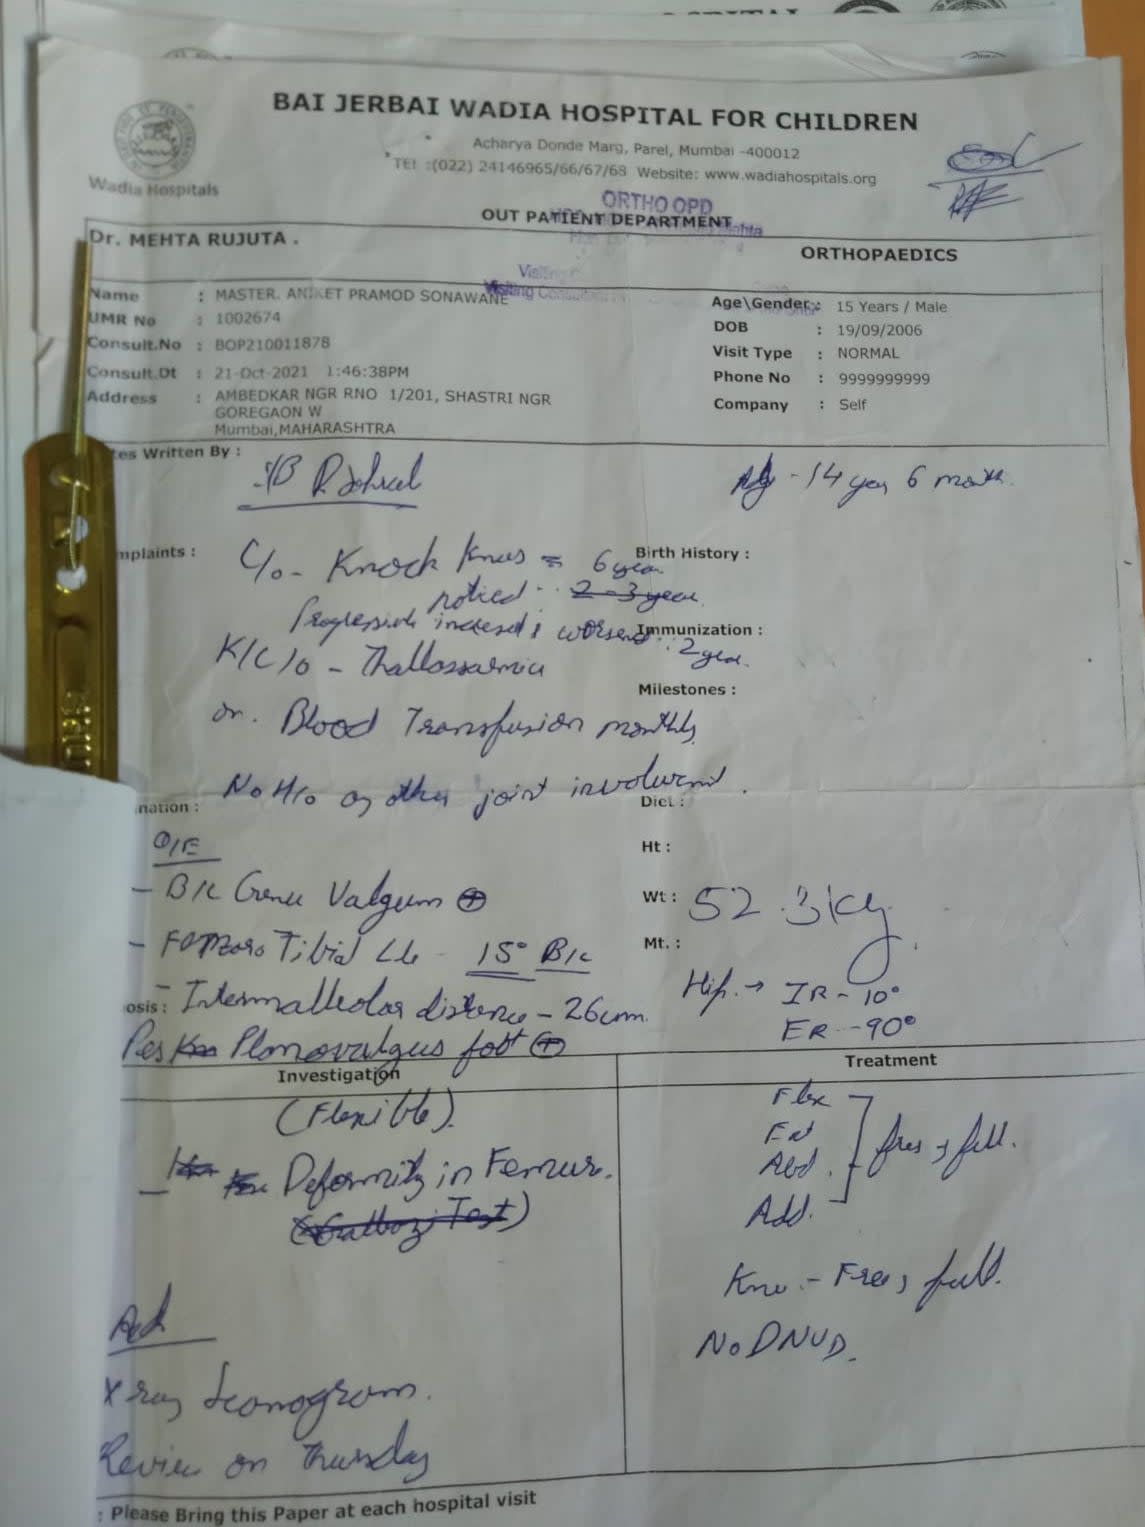 BAI JERBAI WADIA HOSPITAL FOR CHILDREN
Acharya Donde Marg, Parel, Mumbai -400012
TEl :(022) 24146965/66/67/68 Website: www.wadiahospitals.org
Wadia Hospitals
ORTHO OPD
OUT PATIENT DEPARTMENT
Dr. MEHTA RUJUTA .
ORTHOPAEDICS
Visiting
Visiting
Name : MASTER. ANIKET PRAMOD SONAWANE
Age\Gender : 15 Years / Male
UMR No : 1002674
DOB : 19/09/2006
Consult.No : BOP210011878
Visit Type : NORMAL
Consult.Dt : 21-Oct-2021 1:46:38PM
Phone No : 9999999999
Address : AMBEDKAR NGR RNO 1/201, SHASTRI NGR
GOREGAON W
Mumbai,MAHARASHTRA
Company : Self
tes Written By :
14 year 6 month
mplaints :
C/o - Knock Knees 6 year
noticed 2-3 year
Birth History :
Progressive worsened 2 year
Immunization :
K/C/o - Thallossaemia
Milestones :
on. Blood Transfusion monthly
No H/o any other joint involvement.
nation :
Diet :
O/E
Ht :
- B/L Genu Valgum +
Wt : 52.3kg
- Femoro Tibial - 15° B/L
Mt. :
osis : - Intermalleolar distance - 26cm
Hip. → IR - 10°
ER - 90°
Pes Planovalgus foot +
Investigation
Treatment
(Flexible).
- Deformity in Femur.
Flex
Ext
Abd.
Add.
free, full.
Knee - Free, full.
No DNVD.
Adv
X ray Scanogram.
Review on Thursday
: Please Bring this Paper at each hospital visit